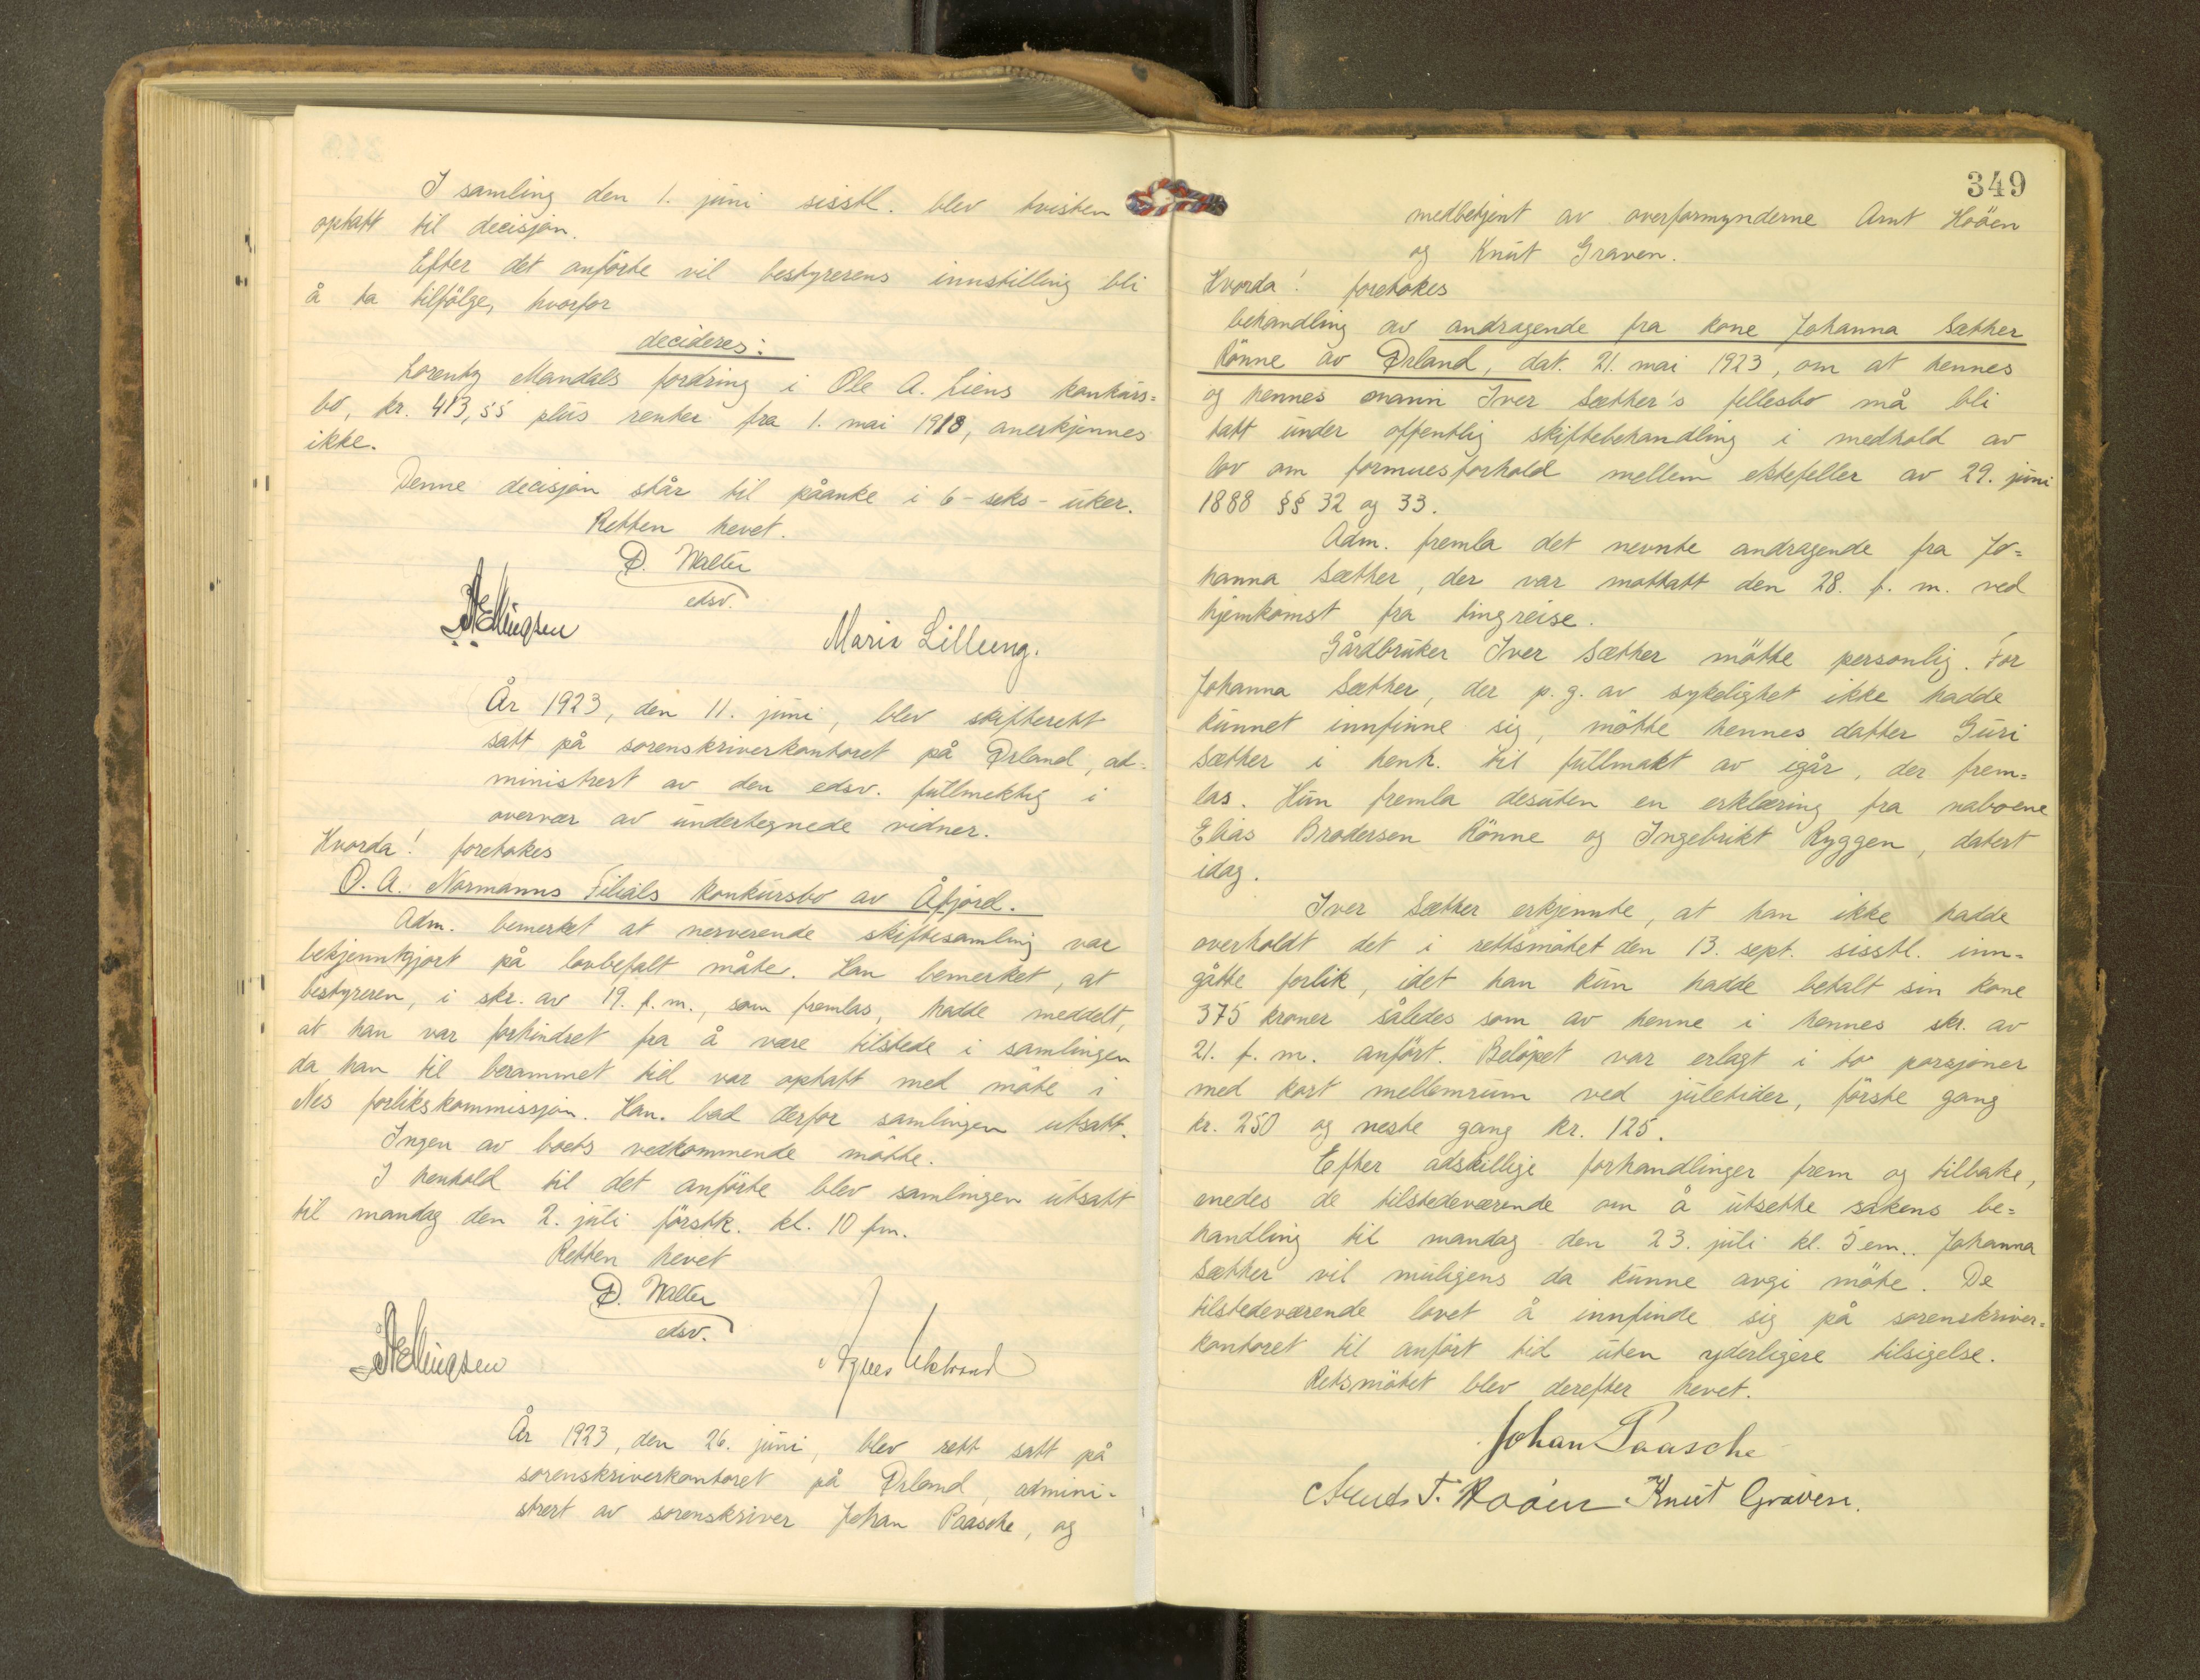 I samling den 1. juni sisstl. blev tvisten
optatt til decisjon.
Efter det anförte vil bestyrerens innstilling bli
å ta tilfölge, hvorfor
decideres:
Lorentz Mandals fordring i Ole A. Liens konkurs=
bo, kr. 413,55 plus renter fra 1. mai 1918, anerkjennes
ikke.
Denne decisjon står til påanke i 6 - seks - uker.
Retten hevet.
D. Walter
edsv.
Maria Lilleeng.
År 1923, den 11. juni, blev skifterett
satt på sorenskriverkontoret på Ørland, ad-
ministrert av den edsv. fullmektig i
overvær av undertegnede vidner.
Hvorda! foretokes
O. A. Normanns Filials konkursbo av Åfjord.
Adm. bemerket at nerverende skiftesamling var
bekjenntgjort på lovbefalt måte. Han bemerket, at
bestyreren, i skr. av 19. f. m., som fremlas, hadde meddelt,
at han var forhindret fra å være tilstede i samlingen
da han til berammet tid var optatt med möte i
Nes forlikskommissjon. Han bad derfor samlingen utsatt.
Ingen av boets vedkommende mötte.
I henhold til det anförte blev samlingen utsatt
til mandag den 2. juli förstk. kl. 10 fm.
Retten hevet
D. Walter
edsv.
Agnes
År 1923, den 26. juni, blev rett satt på
sorenskriverkontoret på Ørland, admini-
strert av sorenskriver Johan Paasche, og
349
medbetjent av overformynderne Arnt Hoöen
og Knut Graven.
Hvorda! foretokes
behandling av andragende fra kone Johanna Sæther
Rönne av Ørland, dat. 21. mai 1923, om at hennes
og hennes mann Iver Sæther's fellesbo må bli
tatt under offentlig skiftebehandling i medhold av
lov om formuesforhold mellem ektefeller av 29. juni
1888 §§ 32 og 33.
Adm. fremla det nevnte andragende fra Jo=
hanna Sæther, der var mottatt den 28. f. m. ved
hjemkomst fra tingreise.
Gårdbruker Iver Sæther mötte personlig. For
Johanna Sæther, der p. g. av sykelighet ikke hadde
kunnet innfinne sig, mötte hennes datter Guri
Sæther i henh. til fullmakt av igår, der frem=
las. Hun fremla desuten en erklæring fra naboene
Elias Brodersen Rönne og Ingebrikt Ryggen, datert
idag.
Iver Sæther erkjennte, at han ikke hadde
overholdt det i rettsmötet den 13. sept. sisstl. inn=
gåtte forlik, idet han kun hadde betalt sin kone
375 kroner således som av henne i hennes skr. av
21. f. m. anfört. Belöpet var erlagt i to porsjoner
med kort mellemrum ved juletider, förste gang
kr. 250 og neste gang kr. 125.
Efter adskillige forhandlinger frem og tilbake,
enedes de tilstedeværende om å utsette sakens be=
handling til mandag den 23. juli kl. 5 em.. Johanna
Sæther vil muligens da kunne avgi möte. De
tilstedeværende lovet å innfinde sig på sorenskriver=
kontoret til anfört tid uten yderligere tilsigelse.
Retsmötet blev derefter hevet.
Johan Paasche
Arnt T. Hoöen Knut Graven.